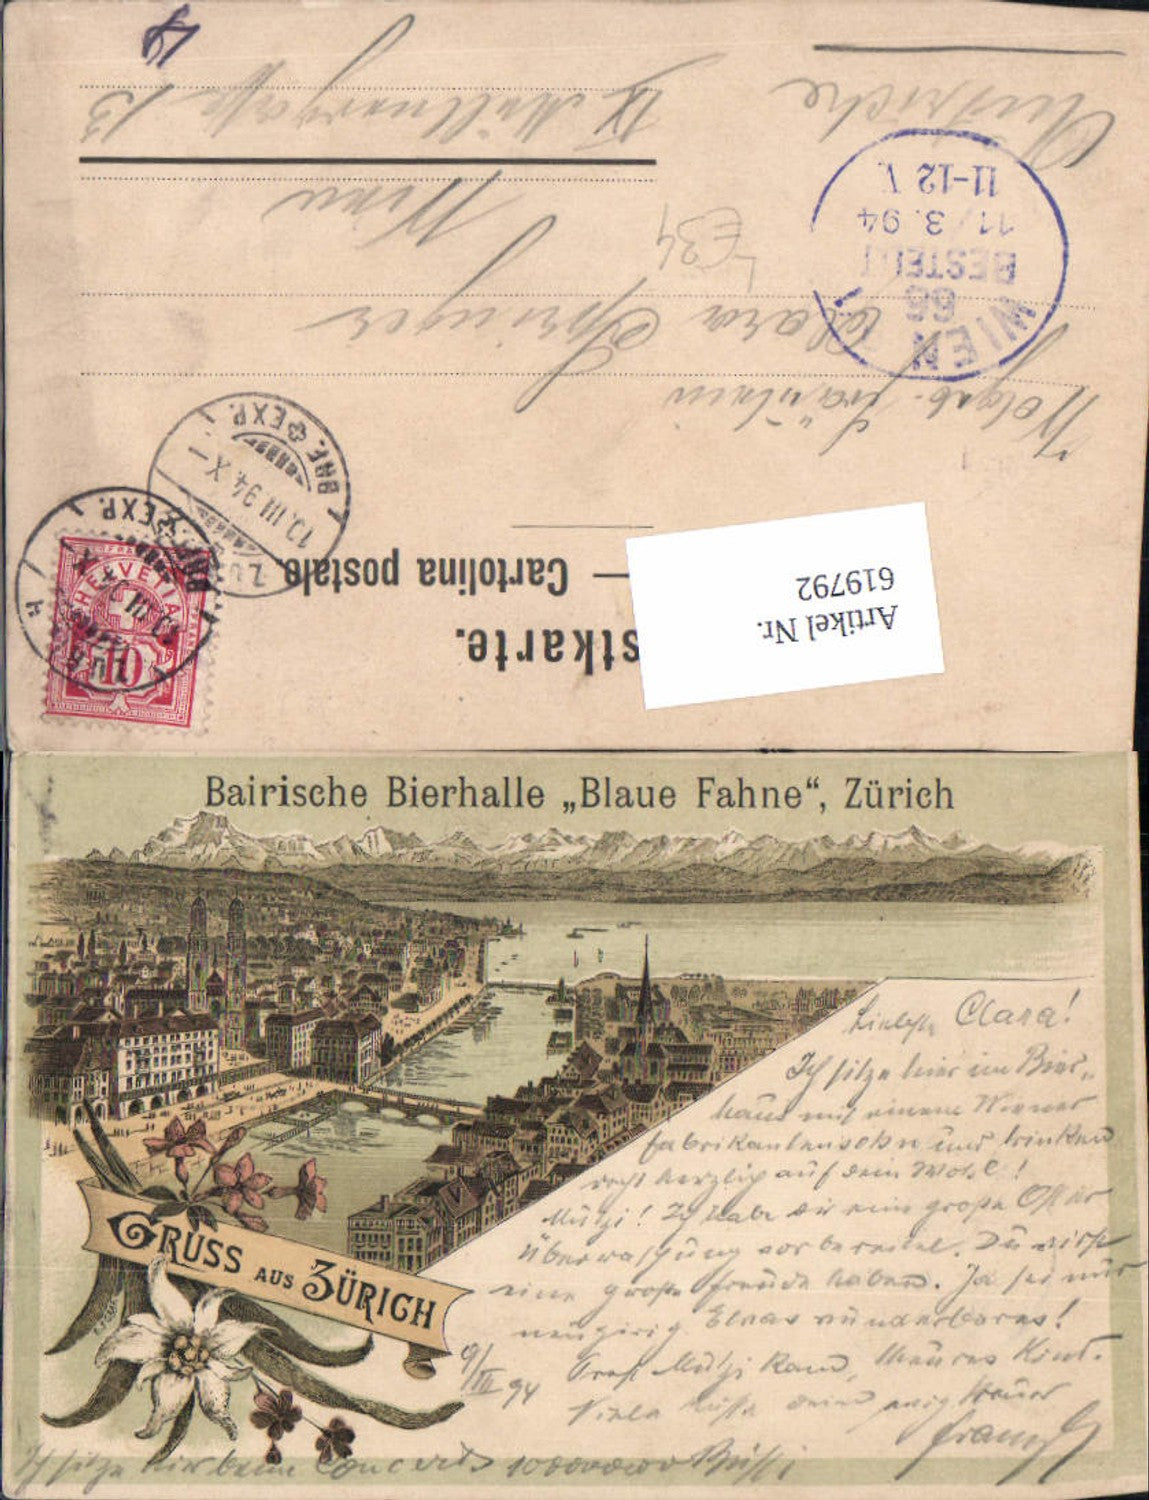 Postkarte.
— Cartolina postale
Artikel Nr.
619792
HELVETIA
10
10. III 94. X—
BRF. EXP.
WIEN
66
BESTELLT
11/3.94
11-12 V.
Wolgeb. Fräulein
Clara Springer
Wien
IX
13
Autriche
E34
Bairische Bierhalle „Blaue Fahne“, Zürich
GRUSS AUS ZÜRICH
Liebste Clara!
Ich sitze hier im Bier-
haus mit einem Wiener
Fabrikantensohn und trinken
recht herzlich auf dein Wohl!
Mutzi! Ich habe dir eine große Oster
Überraschung vorbereitet. Du wirst
eine große Freude haben. Ja sei nur
neugierig Etwas wunderbares!
Mutzi
9/III 94
Viele Küsse dein ewig treuer
Franz
Ich sitze hier beim Concert 10000000 Bussi